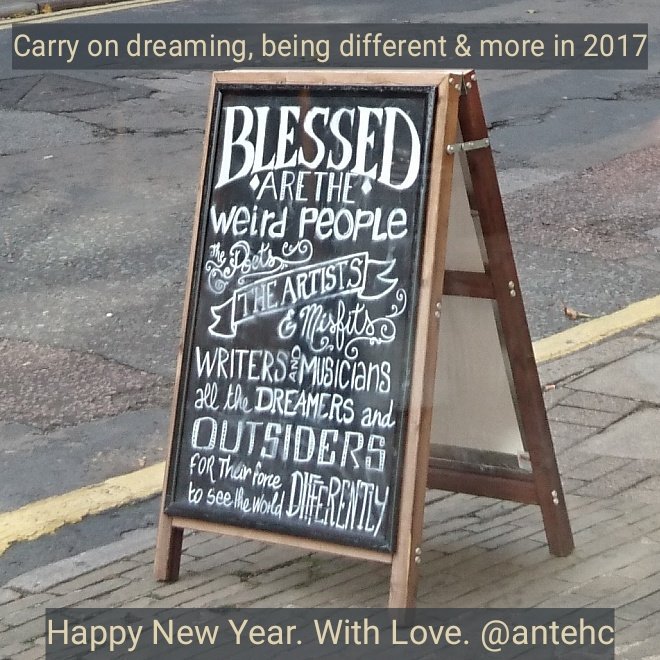 Carry on dreaming, being different & more in 2017
BLESSED
ARE THE
weird PEOPLE
The Poets
THE ARTISTS
& Misfits
WRITERS AND MUSICIANS
all the DREAMERS and
OUTSIDERS
FOR Their force
to see the world DIFFERENTLY
Happy New Year. With Love. @antehc